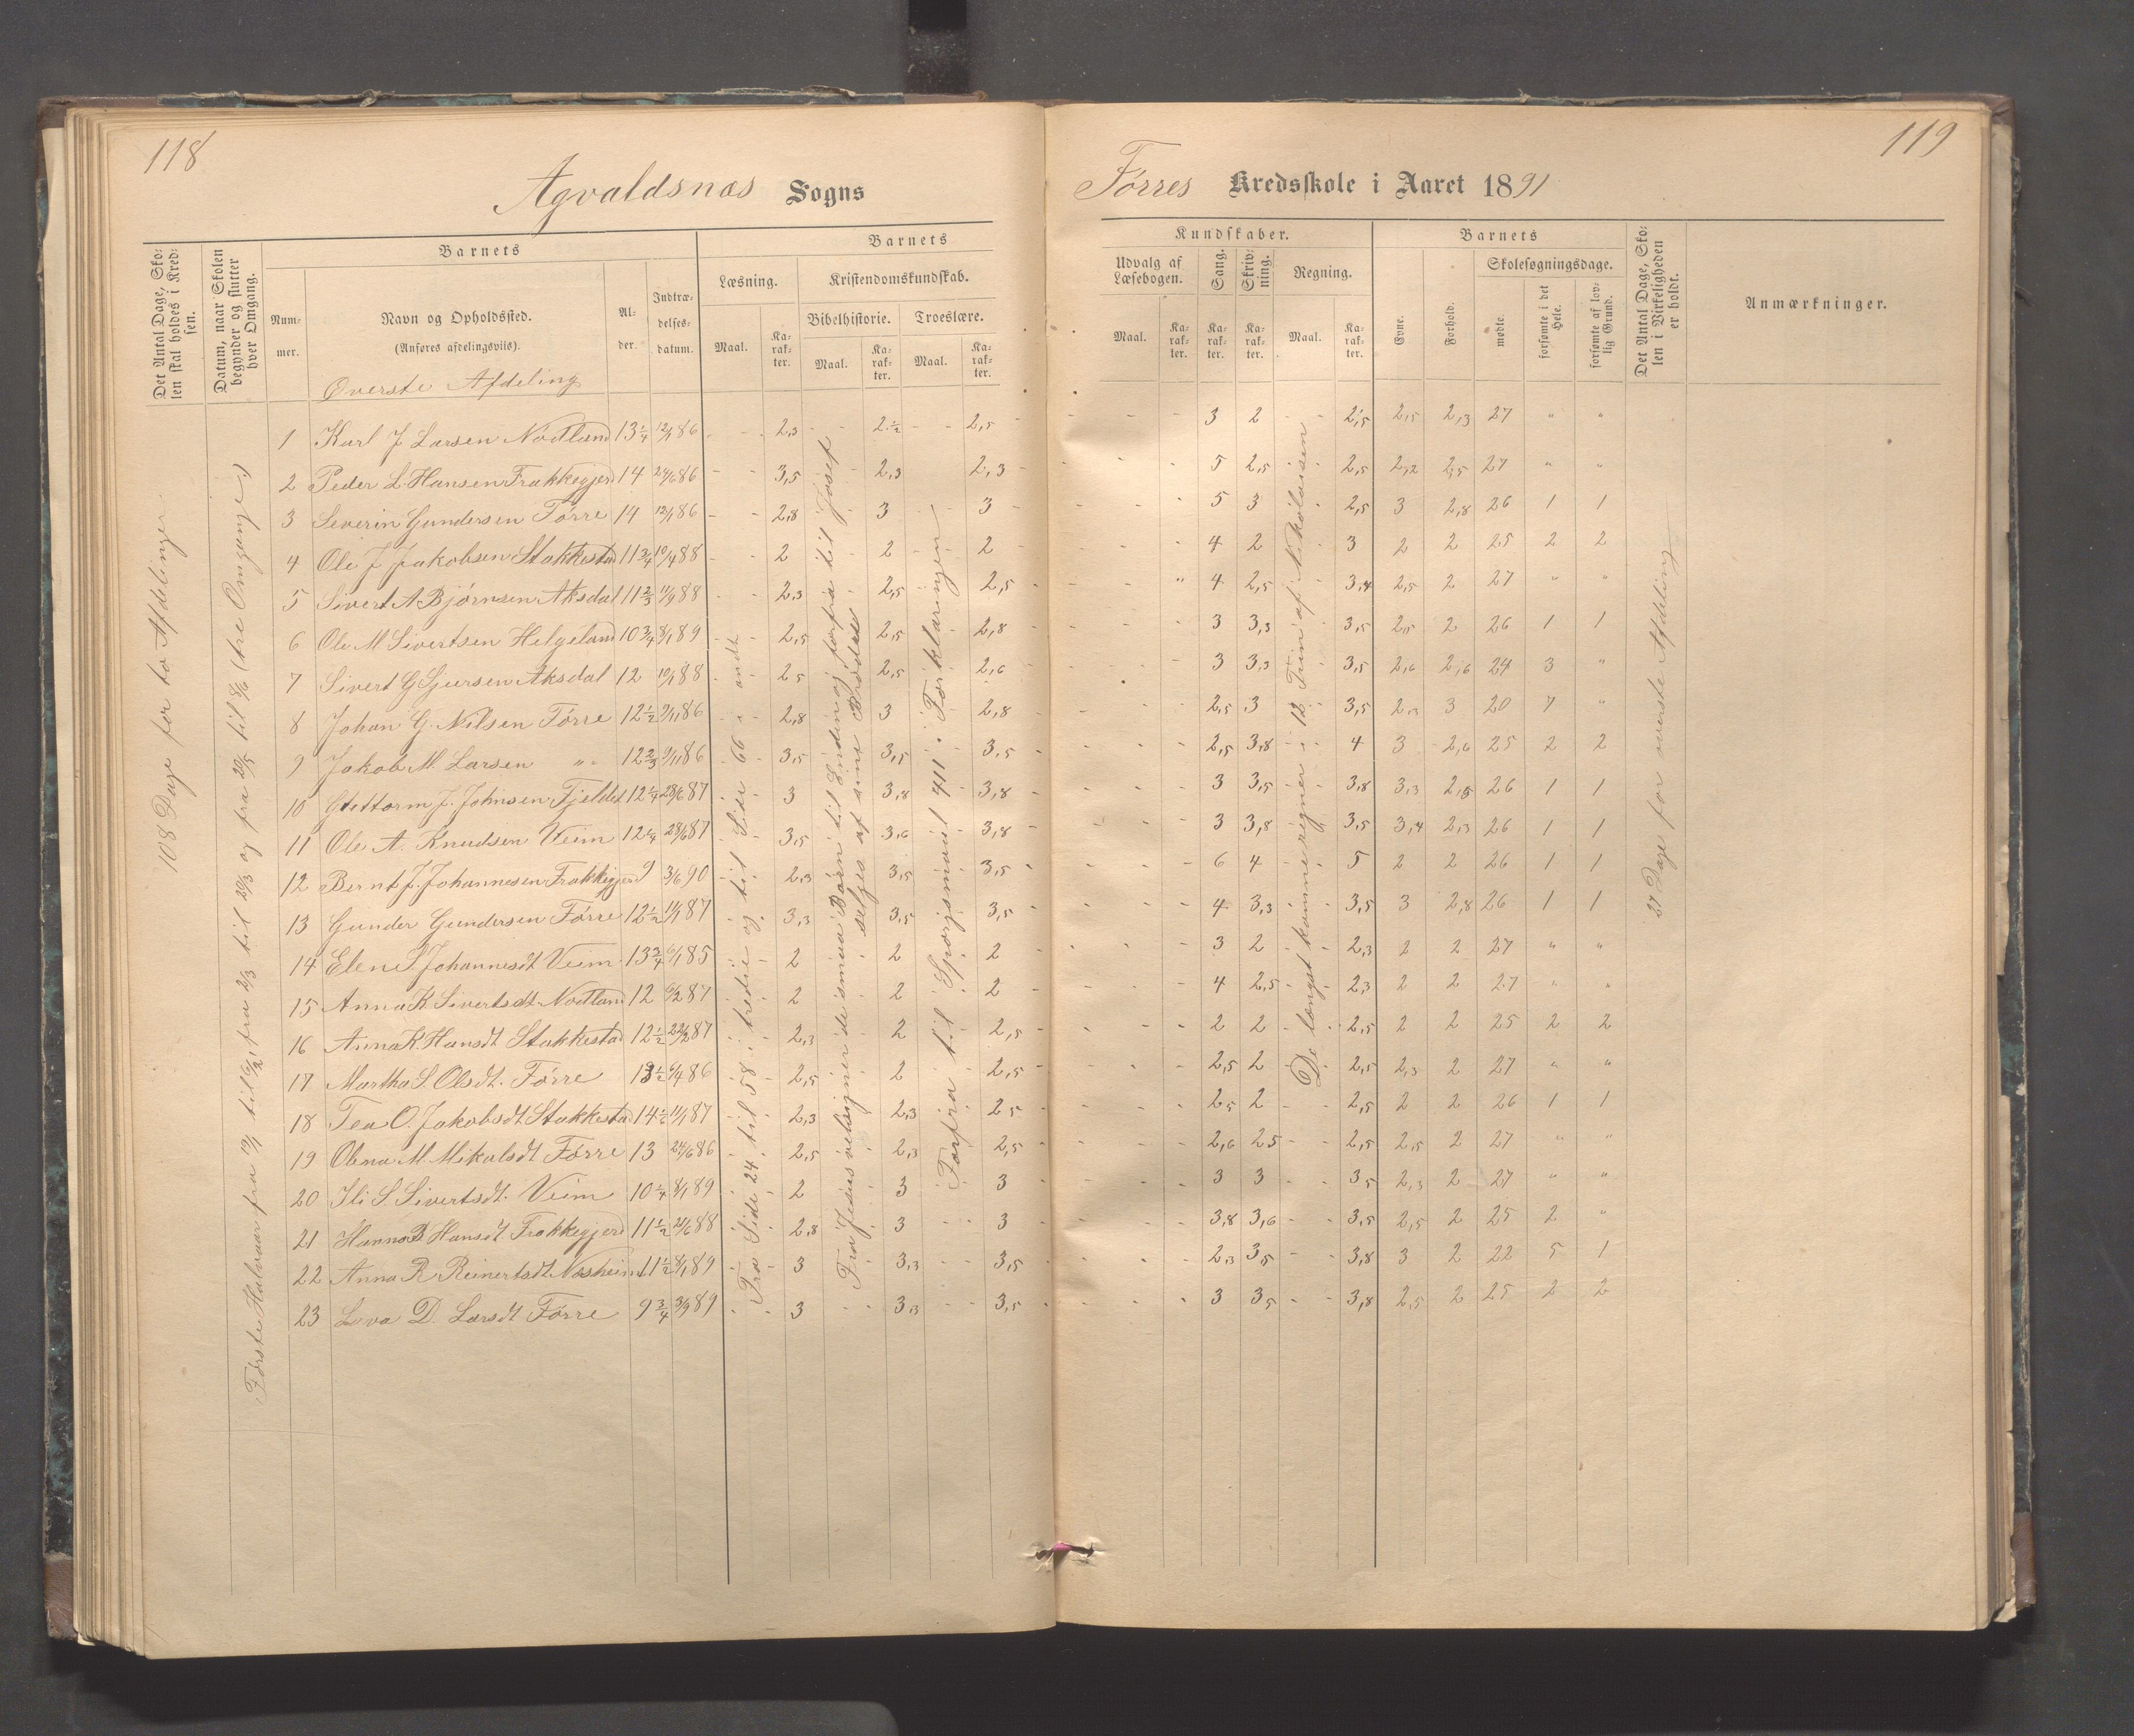 118
119
Agvaldsnæs Sogns
Førres Kredsskole i Aaret 1891
Det Antal Dage, Skolen skal holdes i Kredsen.
Datum, naar Skolen begynder og slutter hver Omgang.
Barnets
Nummer.
Navn og Opholdssted.
(Anføres afdelingsviis).
Alder.
Indtrædelsesdatum.
Barnets
Læsning.
Maal.
Karakter.
Kristendomskundskab.
Bibelhistorie.
Maal.
Karakter.
Troeslære.
Maal.
Karakter.
Kundskaber.
Udvalg af Læsebogen.
Maal.
Karakter.
Sang.
Karakter.
Skrivning.
Karakter.
Regning.
Maal.
Karakter.
Barnets
Evne.
Forhold.
Skolesøgningsdage.
mødte.
forsømte i det Hele.
forsømte af lovlig Grund.
Det Antal Dage, Skolen i Virkeligheden er holdt.
Anmærkninger.
Øverste Afdeling
108 Dage for to Afdelinger
Første Halvaar fra 12/1 til 6/2, fra 2/3 til 20/3 og fra 20/5 til 8/6 (tre Omgange)
Fra Side 24 til 58 i tredie og til Side 66 i andet
Fra Jesus velsigner de smaa Børn til Enden og forfra til Josef
selges af sine Brødre
Forfra til Spørgsmaal 411 i Forklaringen
De længst komne regner i 12 Trin af Nikolaisen
27 Dage for øverste Afdeling
1 Karl J Larsen Nodland 13 1/4 12/1 86 2,3 2 1/2 2,5 3 2 2,5 2,5 2,3 27 " "
2 Peder L Hansen Frakkegjerd 14 24/6 86 3,5 2,3 2,3 5 2,5 2,5 2,2 2,5 27 " "
3 Severin Gundersen Førre 14 12/1 86 2,8 3 3 5 3 2,5 3 2,8 26 1 1
4 Ole J Jakobsen Stakkestad 11 3/4 10/4 88 2 2 2 4 2 3 2 2 25 2 2
5 Sivert A Bjørnsen Aksdal 11 2/3 11/9 88 2,3 2,5 2,5 4 2,5 3,4 2,5 2 27 " "
6 Ole M Sivertsen Helgeland 10 3/4 8/1 89 2,5 2,5 2,8 3 3,3 3,5 2,5 2 26 1 1
7 Sivert G Sjursen Aksdal 12 10/1 88 2 5 2,5 2,6 3 3,3 3,5 2,6 2,6 24 3 "
8 Johan G. Nilsen Førre 12 1/2 9/11 86 2,8 3 2,8 2,5 3 3,5 2,3 3 20 7 "
9 Jakob M. Larsen " " 12 2/3 9/11 86 3,5 3,5 3,5 2,5 3,8 4 3 2,6 25 2 2
10 Guttorm J. Johnsen Fjeldet 12 1/4 28/6 87 3 3,8 3,8 3 3,5 3,8 3,3 2,8 26 1 1
11 Ole A. Knudsen Veim 12 1/4 28/6 87 3,5 3,6 3,8 3 3,8 3,5 3,4 2,3 26 1 1
12 Bernt J. Johannesen Frakkegjerd 9 3/6 90 2,3 3,5 3,5 6 4 5 2 2 26 1 1
13 Gunder Gundersen Førre 12 1/2 11/1 87 3,3 3,5 3,5 4 3,3 3,5 3 2,8 26 1 1
14 Elen S. Johannesdt Veim 13 3/4 6/1 85 2 2 2 3 2 2,3 2 2 27 " "
15 Anna K. Sivertsdt. Nodland 12 6/2 87 2 2 2 4 2,5 2,3 2 2 27 " "
16 Anna K. Hansdt Stakkestad 12 1/2 22/2 87 2,3 2 2,5 2 2 2,5 2 2 25 2 2
17 Martha S. Olsdt. Førre 13 1/2 6/4 86 2,5 2 2,5 2,5 2 2,5 2,3 2 27 " "
18 Tea O. Jakobsdt Stakkestad 14 1/2 11/1 87 2,3 2,3 2 5 2 5 2 2,5 2 2 26 1 1
19 Olena M. Mikalsdt Førre 13 24/6 86 2,5 2,3 2,5 2,6 2 5 2,5 2,5 2 27 " "
20 Ili S. Sivertsdt. Veim 10 1/4 8/1 89 2 3 3 3 3 3 5 2,3 2 27 " "
21 Hanna B Hansdt Frakkegjerd 11 1/2 21/6 88 2,8 3 3 3,8 3,6 3,5 2,5 2 25 2 "
22 Anna R Reinertsdt Næsheim 11 1/2 8/1 89 3 3,3 3,5 2,3 3,5 3,8 3 2 22 5 1
23 Lava D. Larsdt Førre 9 3/4 3/9 89 3 3,3 3,5 3 3,5 3,8 2,5 2 25 2 2